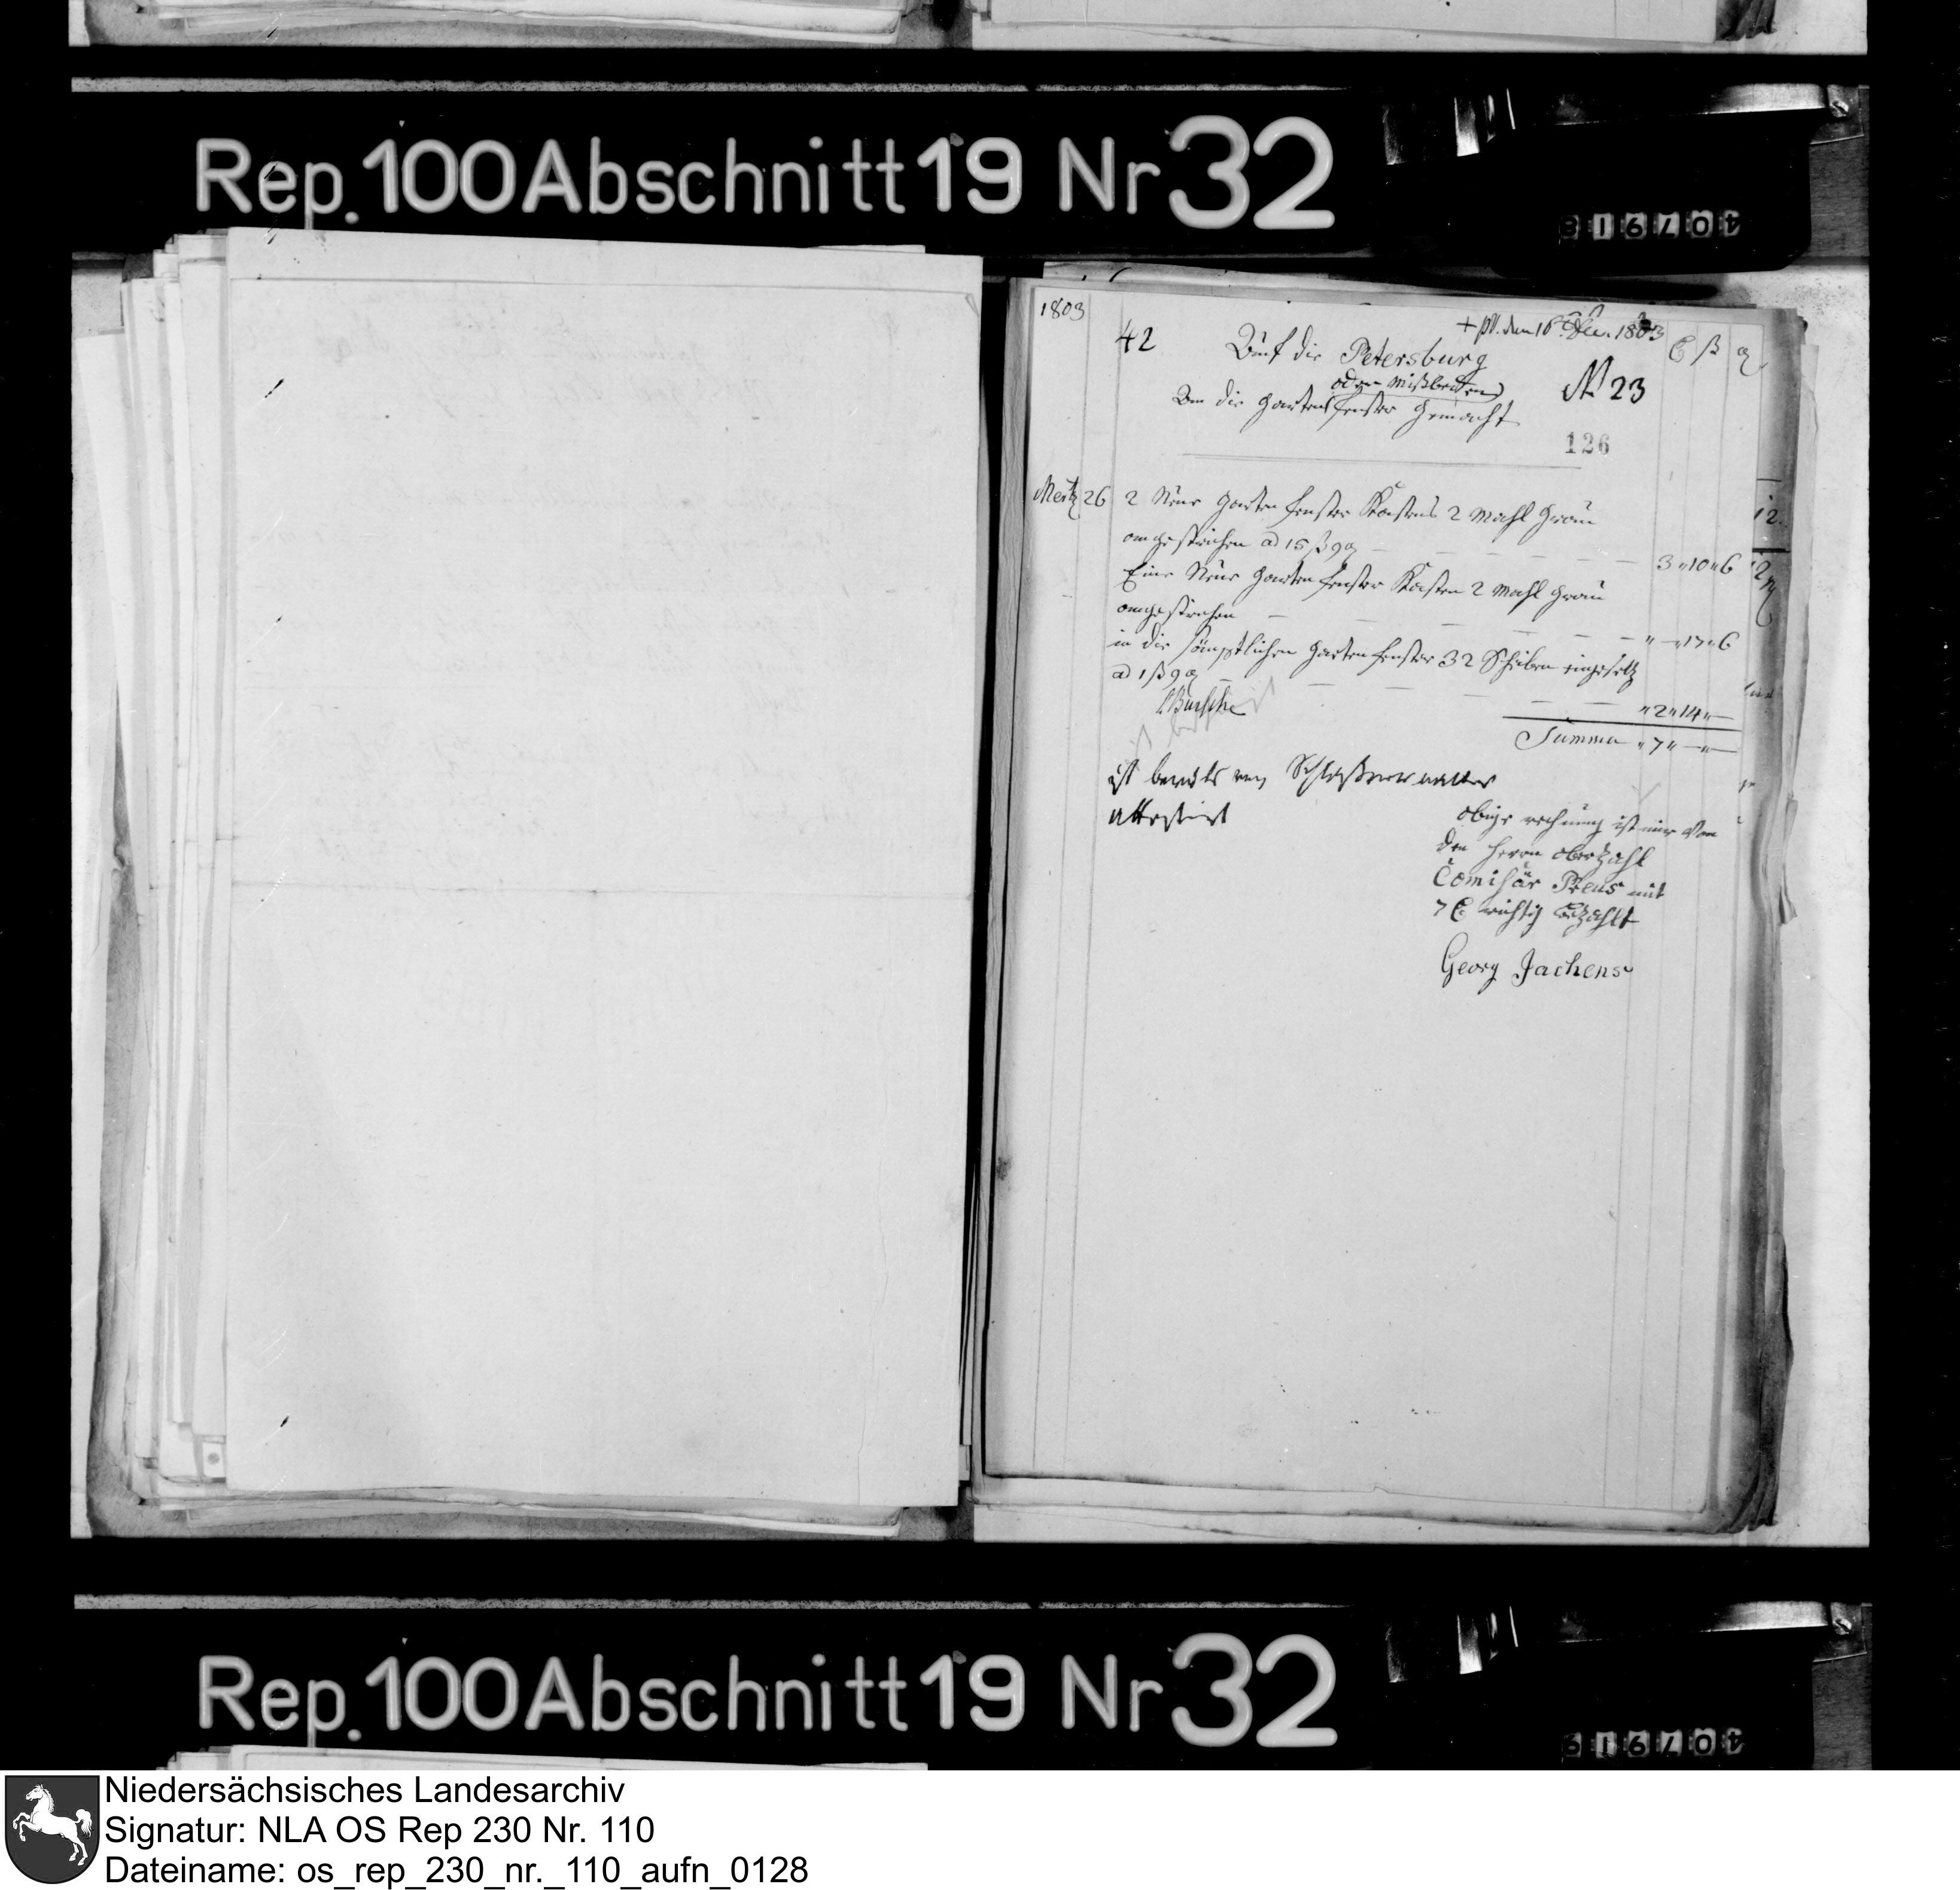 Rep. 100 Abschnitt 19 Nr 32
1803
+ pst. den 16t Dec. 1803
42
Auf die Petersburg
oder Mißbeeten
An die Gartens fenster gemacht
N 23
126
Mertz 26 2 Neue Garten fenster Kastens 2 Mahl Grau
angestrichen ad 15 ß 9 ₰ 3 „ 10 „ 6
Eine Neue Garten fenster Kasten 2 Mahl Grau
angestrichen „ — „ 17 „ 6
in die sämptlichen Garten fenster 32 Scheiben eingesetz
ad 1 ß 9 ₰ „ 2 „ 14 „ —
Summa „ 7 „ — „ —
ist bereits von Schloßverwalter
attestirt
obige rechnung ist mir von
den Herrn oberzahl
Comißär Preus mit
7 richtig bezahlt
Georg Jachens
Rep. 100 Abschnitt 19 Nr 32
Niedersächsisches Landesarchiv
Signatur: NLA OS Rep 230 Nr. 110
Dateiname: os_rep_230_nr._110_aufn_0128